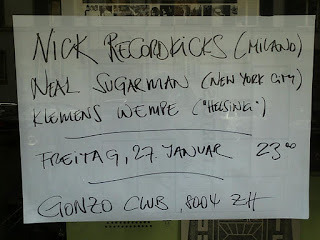 NICK RECORDKICKS (MILANO)
NEAL SUGARMAN (NEW YORK CITY)
KLEMENS WEMPE ("HELSING")
FREITAG, 27. JANUAR 23⁰⁰
GONZO CLUB, 8004 ZH